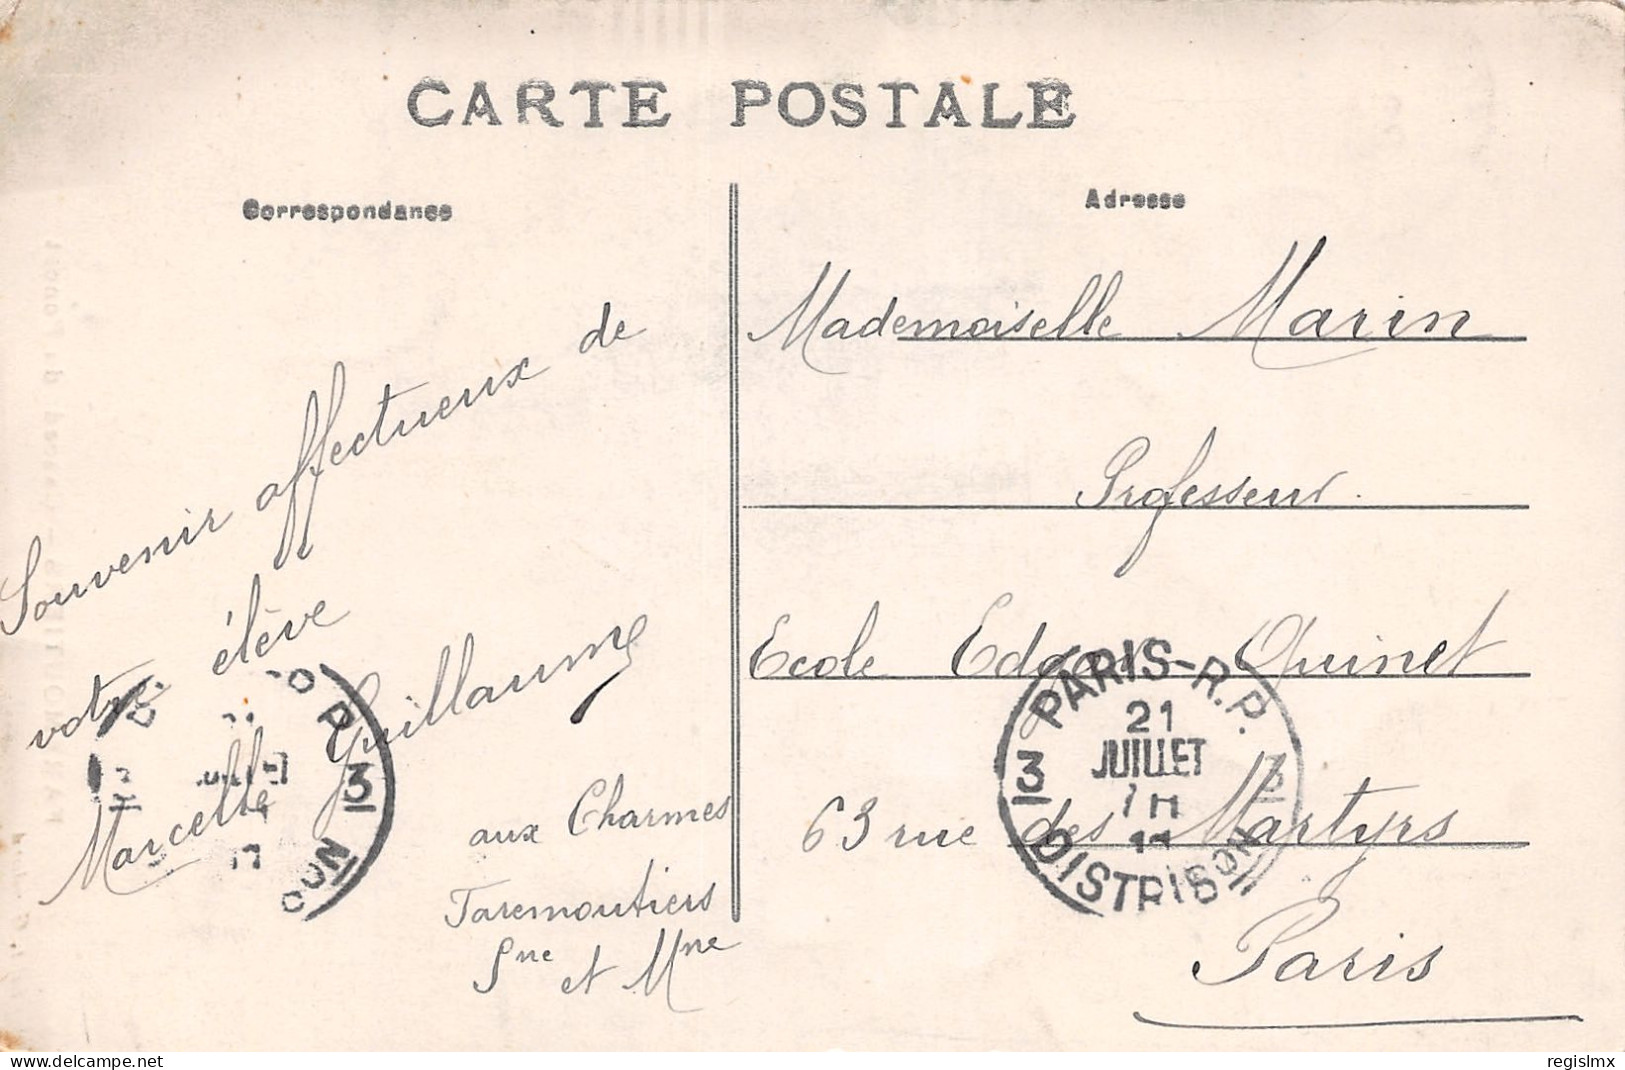 CARTE POSTALE
Correspondance
Adresse
Souvenir affectueux de
votre élève
Marcelle Guillaume
aux Charmes
Faremoutiers
Sne et Mne
Mademoiselle Marin
Professeur
Ecole Edgar Quinet
63 rue des Martyrs
Paris
PARIS-R.P.
21
JUILLET
3 3
DISTRIBUTION
3
delcampe.net
regislmx